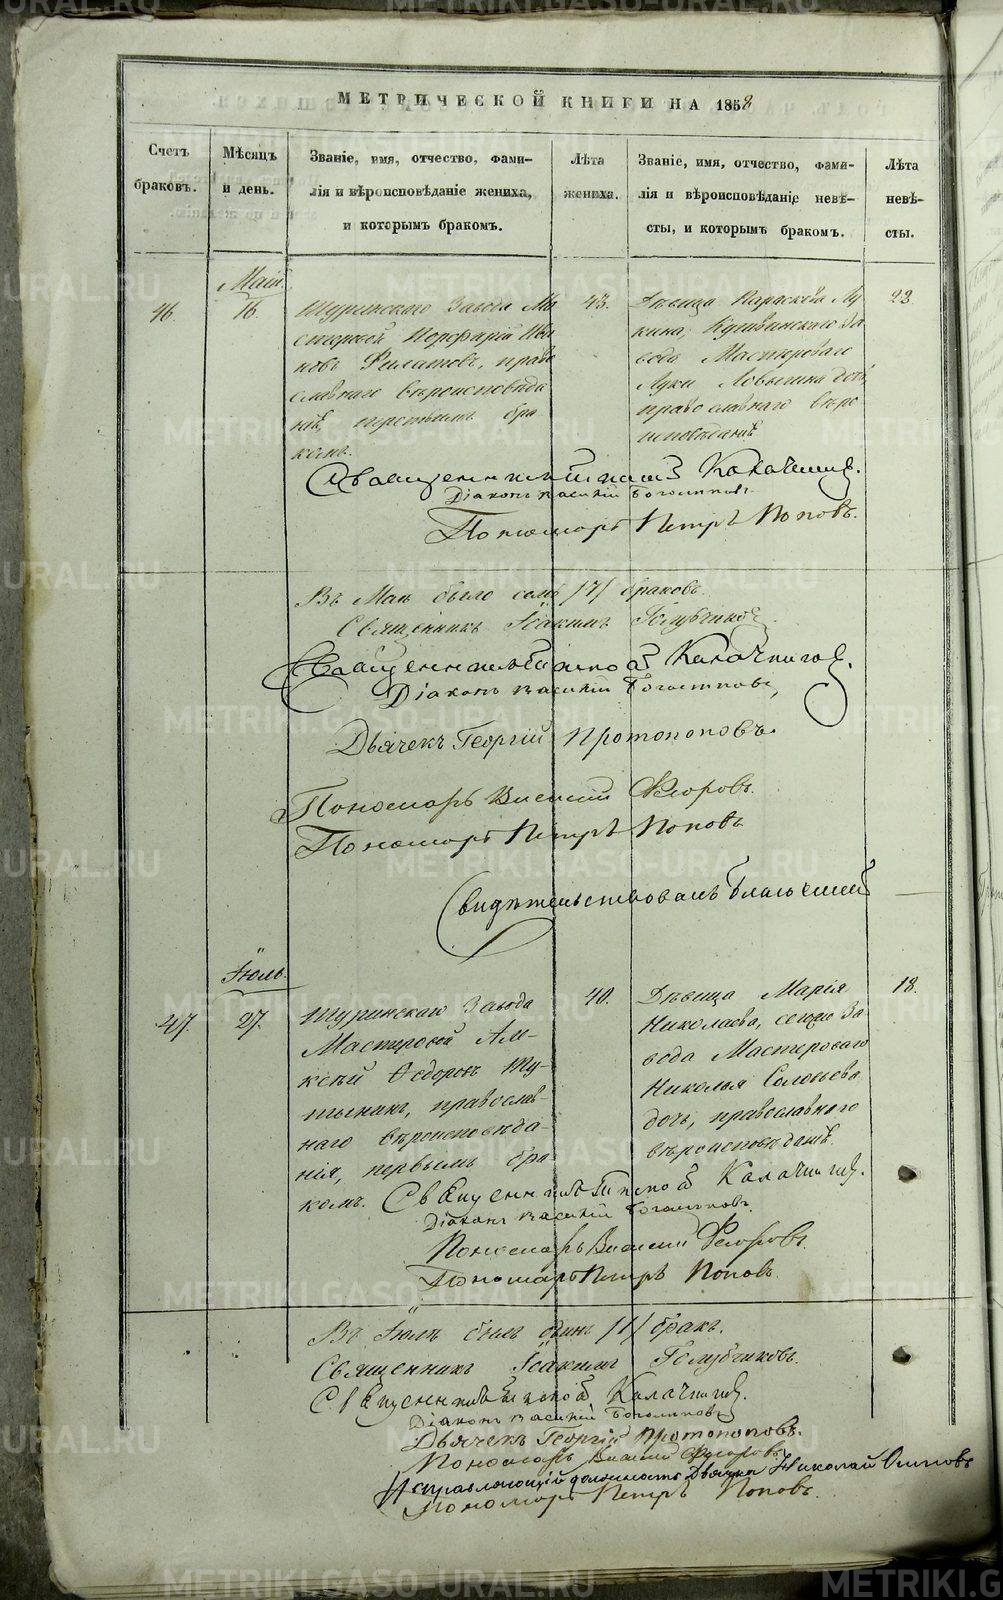 МЕТРИЧЕСКОЙ КНИГИ НА 1858
Счетъ браковъ.
Мѣсяцъ и день.
Званіе, имя, отчество, фами-
лія и вѣроисповѣданіе жениха,
и которымъ бракомъ.
Лѣта жениха.
Званіе, имя, отчество, фами-
лія и вѣроисповѣданіе невѣ-
сты, и которымъ бракомъ.
Лѣта невѣ-
сты.
Май.
46.
16.
Туринскаго Завода Ма
стеровой Порфирій Ива
новъ Филатовъ, право
славнаго вѣроисповѣда
нія, первымъ бра
комъ.
43.
Дѣвица Параскева Лу
кина, Кушвинскаго За
вода Мастероваго
Луки дочь,
православнаго вѣро
исповѣданія
22.
Священникъ Калачниковъ.
Діаконъ Василій
Пономарь Петръ Поповъ.
Въ Маѣ было семь /7/ браковъ.
Священникъ Іоакимъ Голубчиковъ.
Священникъ Калачниковъ.
Діаконъ Василій
Дьячекъ Георгій Протопоповъ.
Пономарь Василій Флоровъ.
Пономарь Петръ Поповъ
Свидѣтельствовалъ Благочинный
Іюль.
47.
27.
Туринскаго Завода
Мастеровой Але-
ксѣй Ѳедоровъ
православ-
наго вѣроисповѣда-
нія, первымъ бра-
комъ.
40.
Дѣвица Марія
Николаева, сего За
вода Мастероваго
Николая Соловьева
дочь, православнаго
вѣроисповѣданія.
18.
Священникъ Калачниковъ.
Діаконъ Василій
Пономарь Василій Флоровъ.
Пономарь Петръ Поповъ
Въ Іюлѣ былъ одинъ /1/ бракъ.
Священникъ Іоакимъ Голубчиковъ.
Священникъ Калачниковъ.
Діаконъ Василій
Дьячекъ Георгій Протопоповъ.
Пономарь Василій Флоровъ.
Исправляющій должность Дьячка Николай Осиповъ
Пономарь Петръ Поповъ.
METRIKI.GASO-URAL.RU